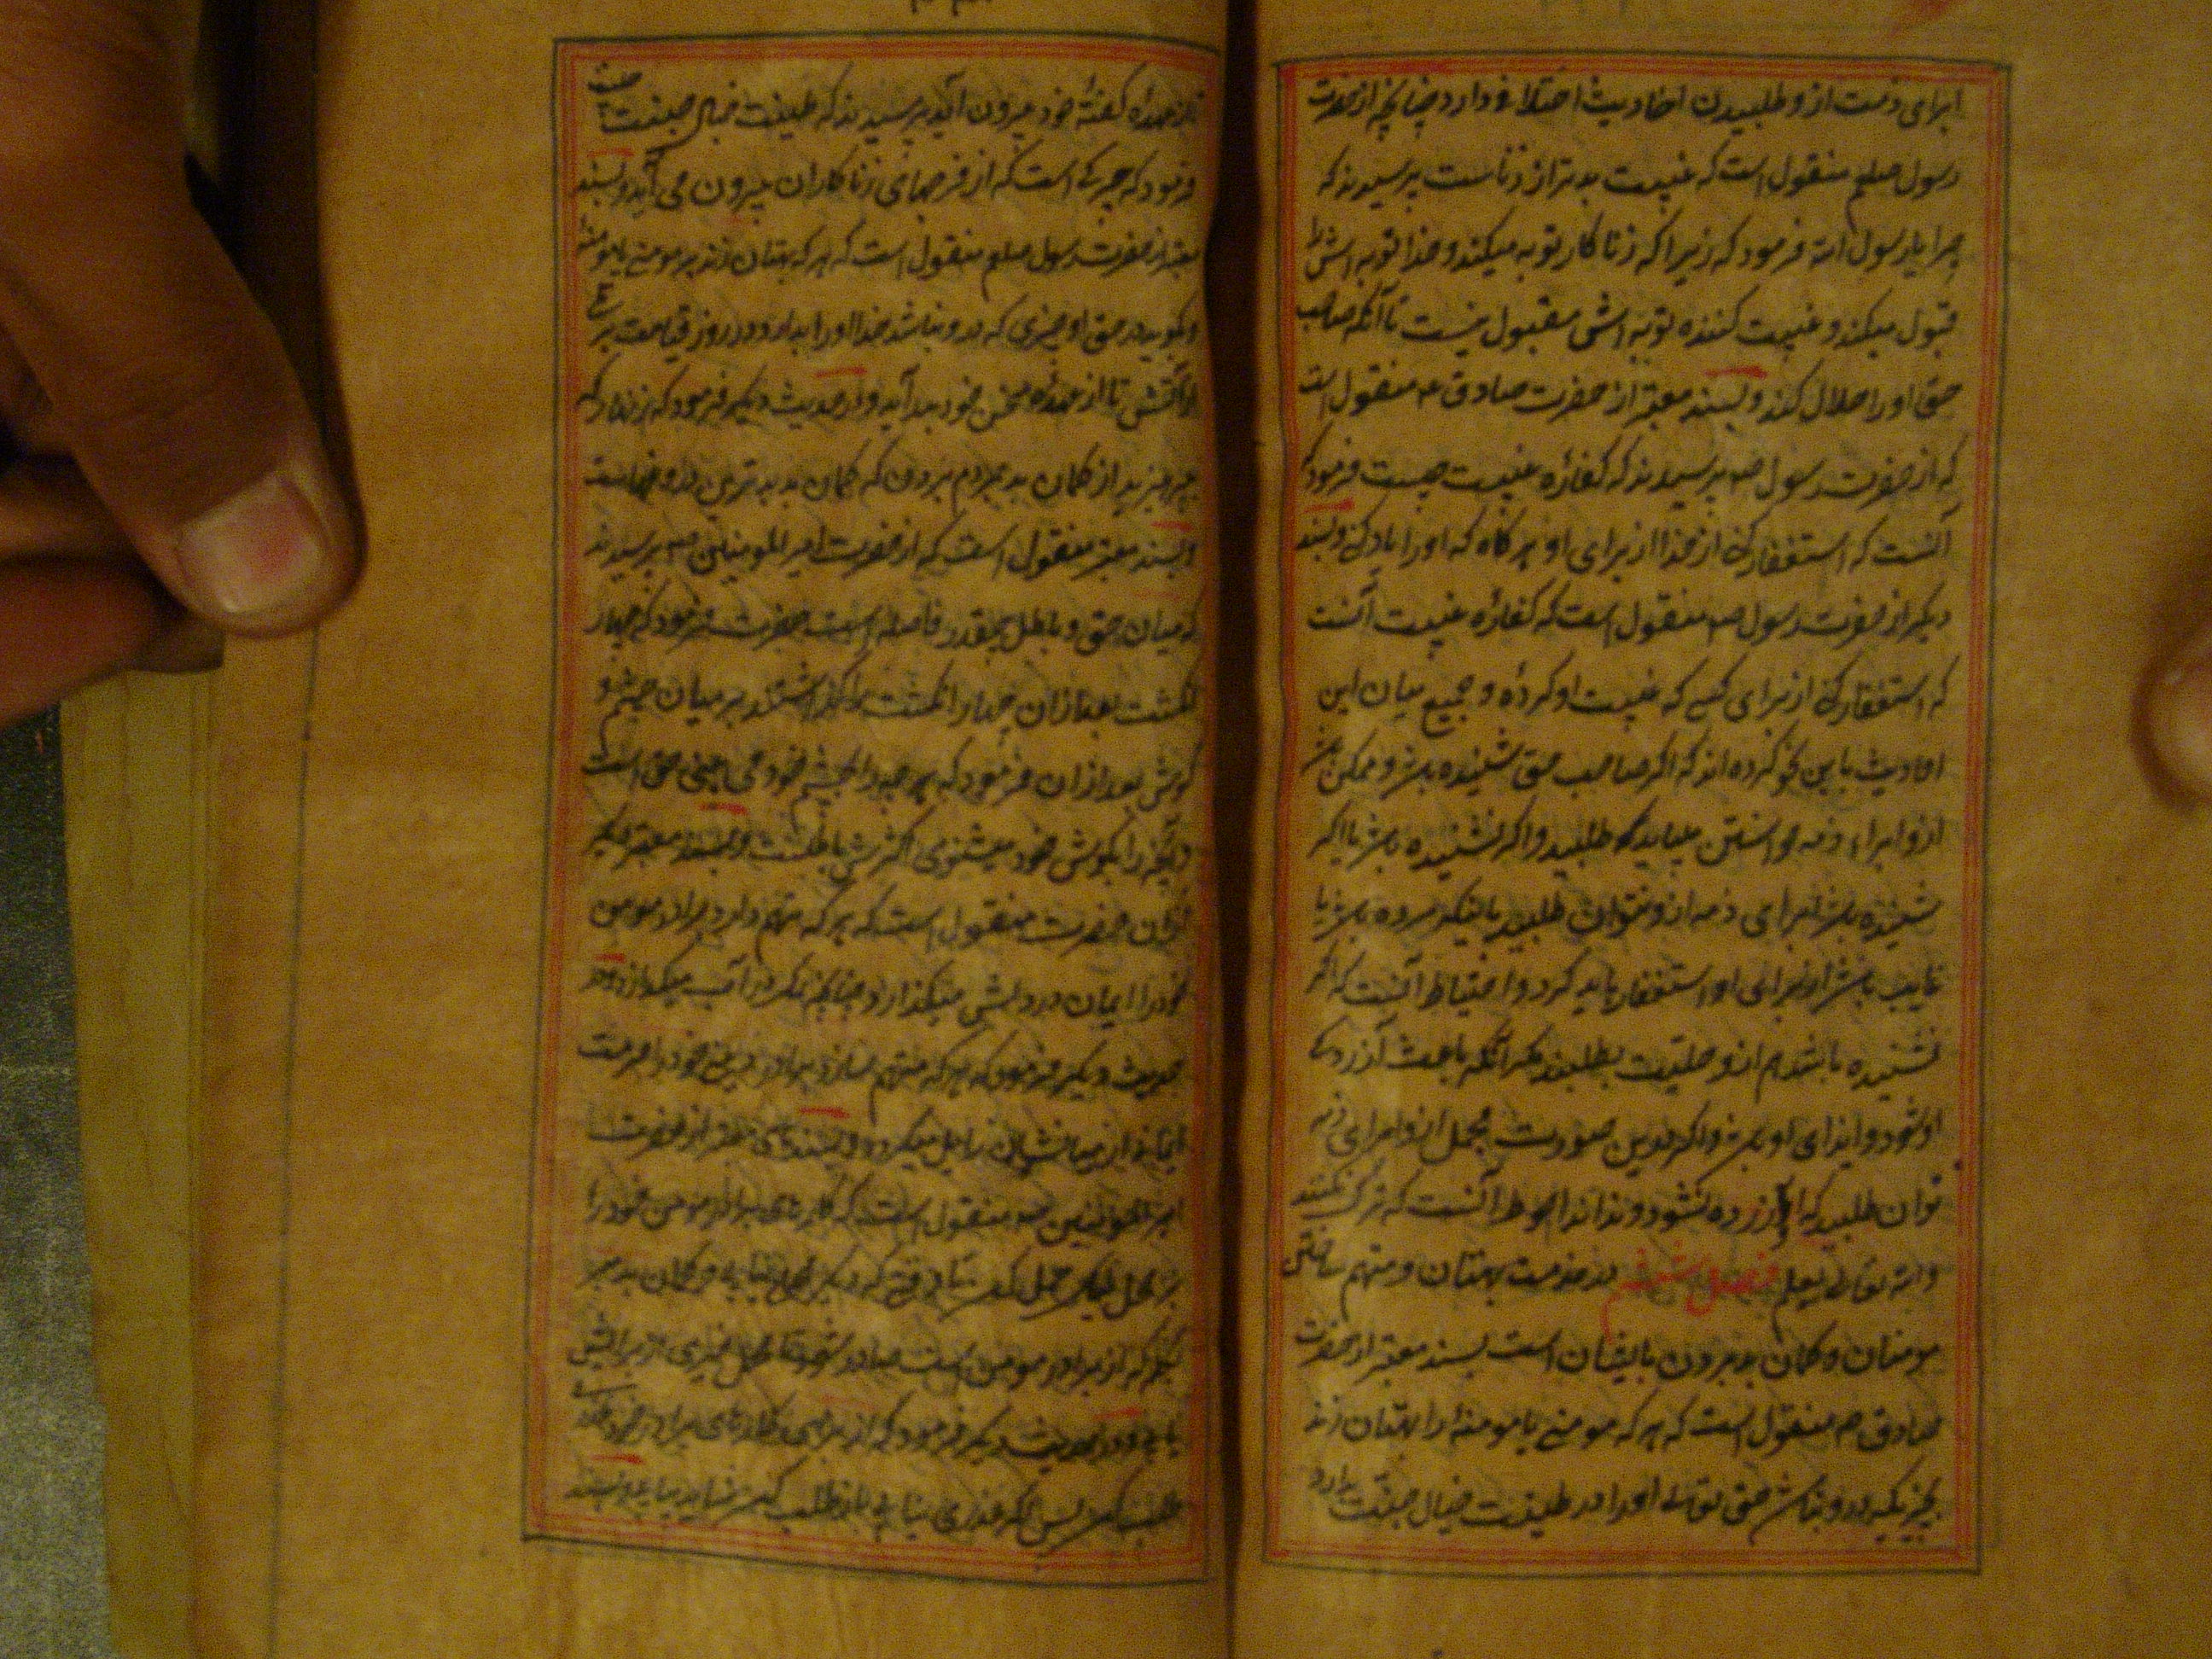 ابرای ذمت ازو طلبیدن احادیث اختلاف دارد چنانچه از حضرت
رسول صلعم منقول است که غیبت بدتر از زناست پرسیدند که
چرا یا رسول الله فرمود که زیرا که زنا کار توبه میکند و خدا توبه اش را
قبول میکند و غیبت کننده توبه اش مقبول نیست تا آنکه صاحب
حق او را حلال کند و بسند معتبر از حضرت صادق ع منقول است
که از حضرت رسول ص پرسیدند که کفاره غیبت چیست فرمود که
آنست که استغفار کنی از خدا از برای او هر گاه که او را یاد کنی و بسند
دیگر از حضرت رسول ص منقول است که کفاره غیبت آنست
که استغفار کنی از برای کسے که غیبت او کرده و جمیع میان این
احادیث باین نحو کرده اند که اگر صاحب حق شنیده باشد و ممکن باشد
ازو ابراء ذمه خواستن میباید که طلبید و اگر نشنیده باشد یا اگر
شنیده باشد ابرای ذمه ازو نتوان طلبید باینکه مرده باشد یا
غایب باشد از برای او استغفار باید کرد و احتیاط آنست که اگر
نشنیده باشد هم ازو حلیت بطلبند مگر آنکه باعث آزردگی
او شود و ایذای او باشد و اگر بدین صورت مجمل ازو ابرای ذمه
توان طلبید که او آزرده نشود و نداند احوط آنست که ترک نکنند
والله تعالی یعلم فصل ششم در مذمت بهتان و متهم ساختن
مومنان و گمان بد بردن بایشان است بسند معتبر از حضرت
صادق ص منقول است که هر که مومنے یا مومنهٔ را بهتان زند
بچیزیکه درو نباشد حق تعالے او را در طینت خبال حبست دارد
تا از عهدهٔ گفتهٔ خود بیرون آید پرسیدند که طینت خبال چیست
فرمود که چرکے است که از فرجهای زنا کاران بیرون می آید و بسند
معتبر از حضرت رسول صلعم منقول است که هر که بهتان زند بر مومنے یا مومنهٔ
و بگوید در حق او چیزی که درو نباشد خدا او را بدارد در روز قیامت بر تلی
از آتش تا از عهده سخن خود بدر آید و در حدیث دیگر فرمود که زنهار که
بپرهیزید از گمان بد بمردم بردن که گمان بد بدترین دروغهاست
و بسند معتبر منقول است که از حضرت امیر المومنین ص پرسیدند
که میان حق و باطل چقدر فاصله است حضرت فرمود که چهار
انگشت بعد ازان چهار انگشت را گذاشتند بر میان چشم و
گوش بعد ازان فرمود که هر چه را بچشم خود می بینی حق است
و آنچه را بگوش خود میشنوی اکثرش باطلست و بسند معتبر دیگر
ازان حضرت منقول است که هر که متهم دارد برادر مومن
خود را ایمان در دلش میگذارد چنانچه نمک در آب میگدازد و در
حدیث دیگر فرمود که هر که متهم سازد برادر دینی خود را حرمت
ایمان از میانشان زایل میگردد و بسندهای معتبر از حضرت
امیر المومنین ص منقول است که کارهای برادر مومن خود را
بر محمل نیکی حمل کن تا وقتے که دیگر محمل نیابی و گمان بد مبر
بکلمه که از برادر مومن است صادر شود تا محمل خیری از برایش
یابی و در حدیث دیگر فرمود که از برای کارهای برادر خود عذرے
طلب کن پس اگر عذری نیابی باز طلب کن شاید بیابی و بسند